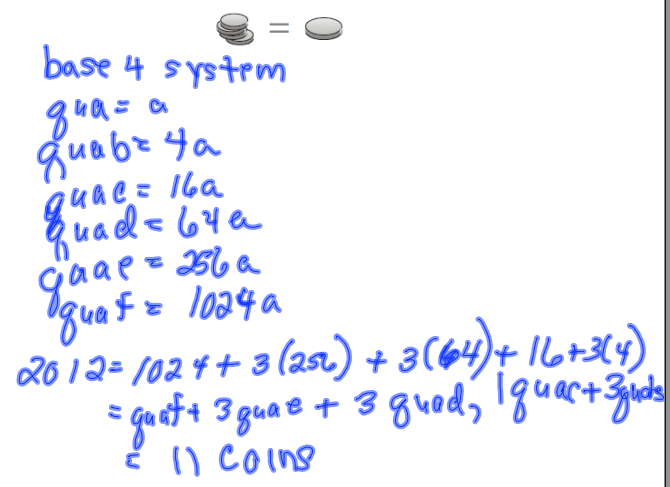 =
base 4 system
qua = a
quab = 4a
quac = 16a
quad = 64a
quae = 256a
quaf = 1024a
2012 = 1024 + 3(256) + 3(64) + 16 + 3(4)
= quaf + 3 quae + 3 quad, 1 quac + 3 quabs
= 11 coins